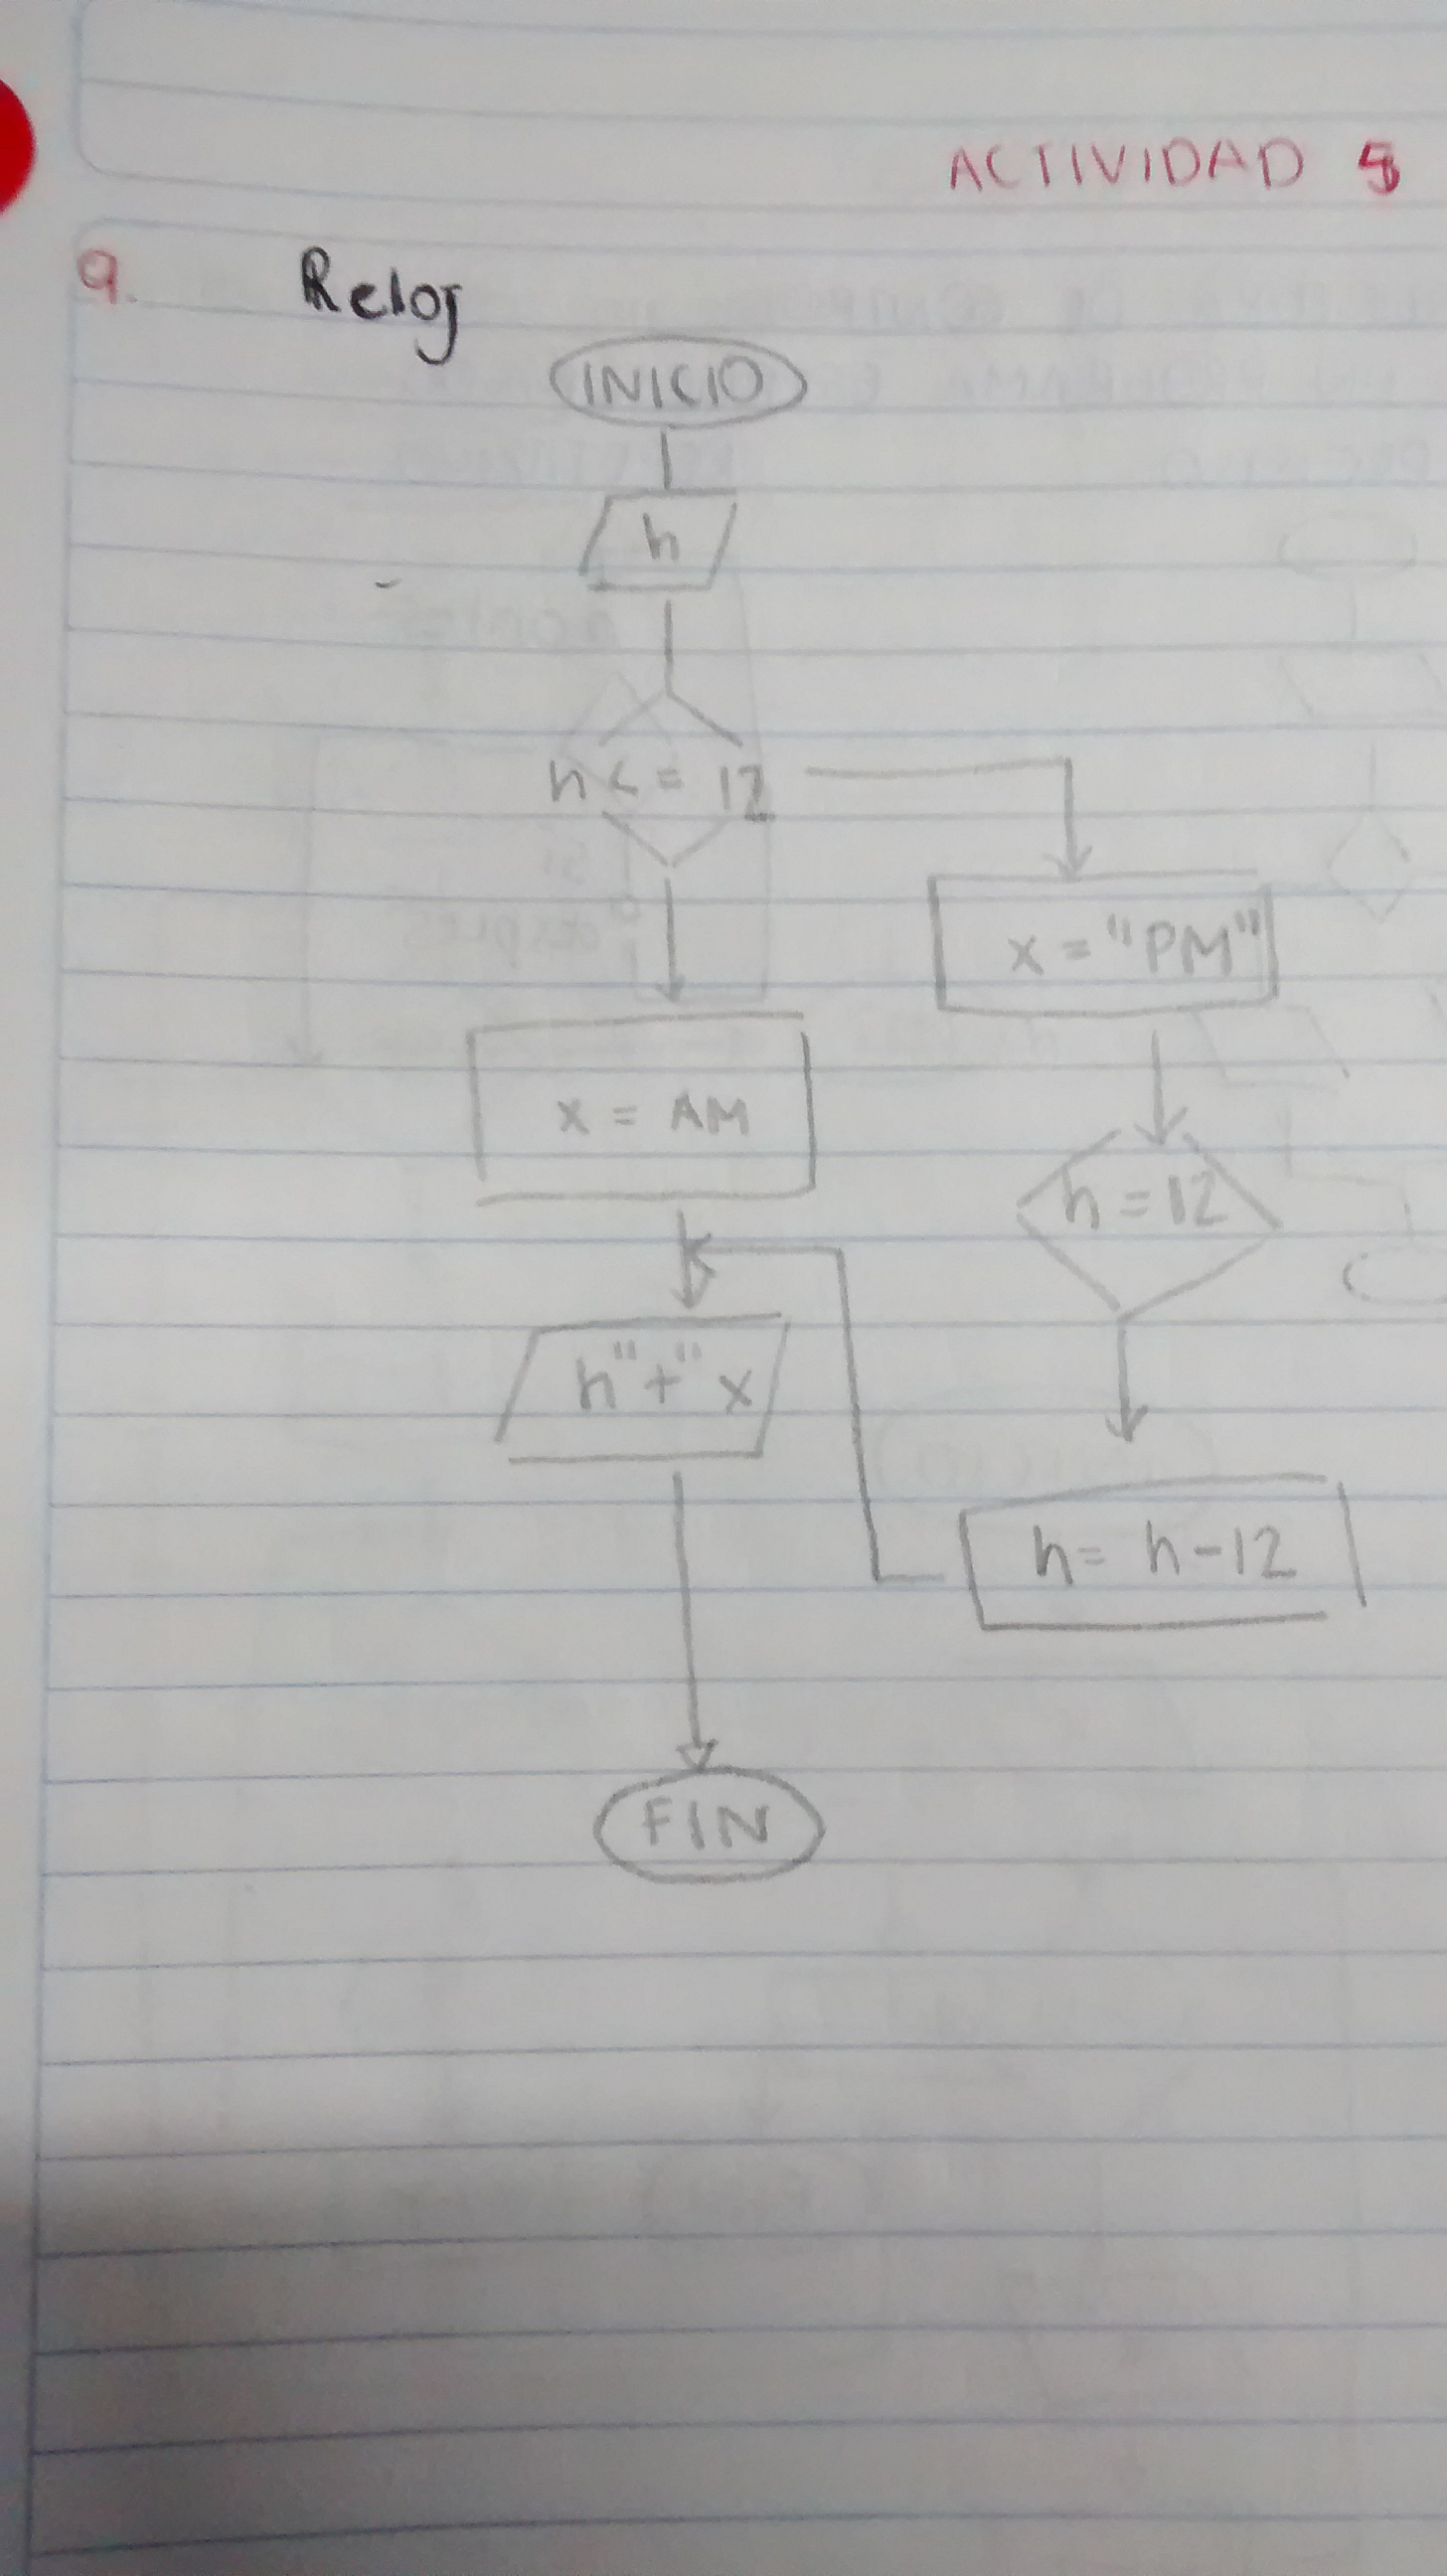 ACTIVIDAD 5
9. Reloj
INICIO
h
h <= 12
x = "PM"
x = AM
h = 12
h "+" x
h = h - 12
FIN